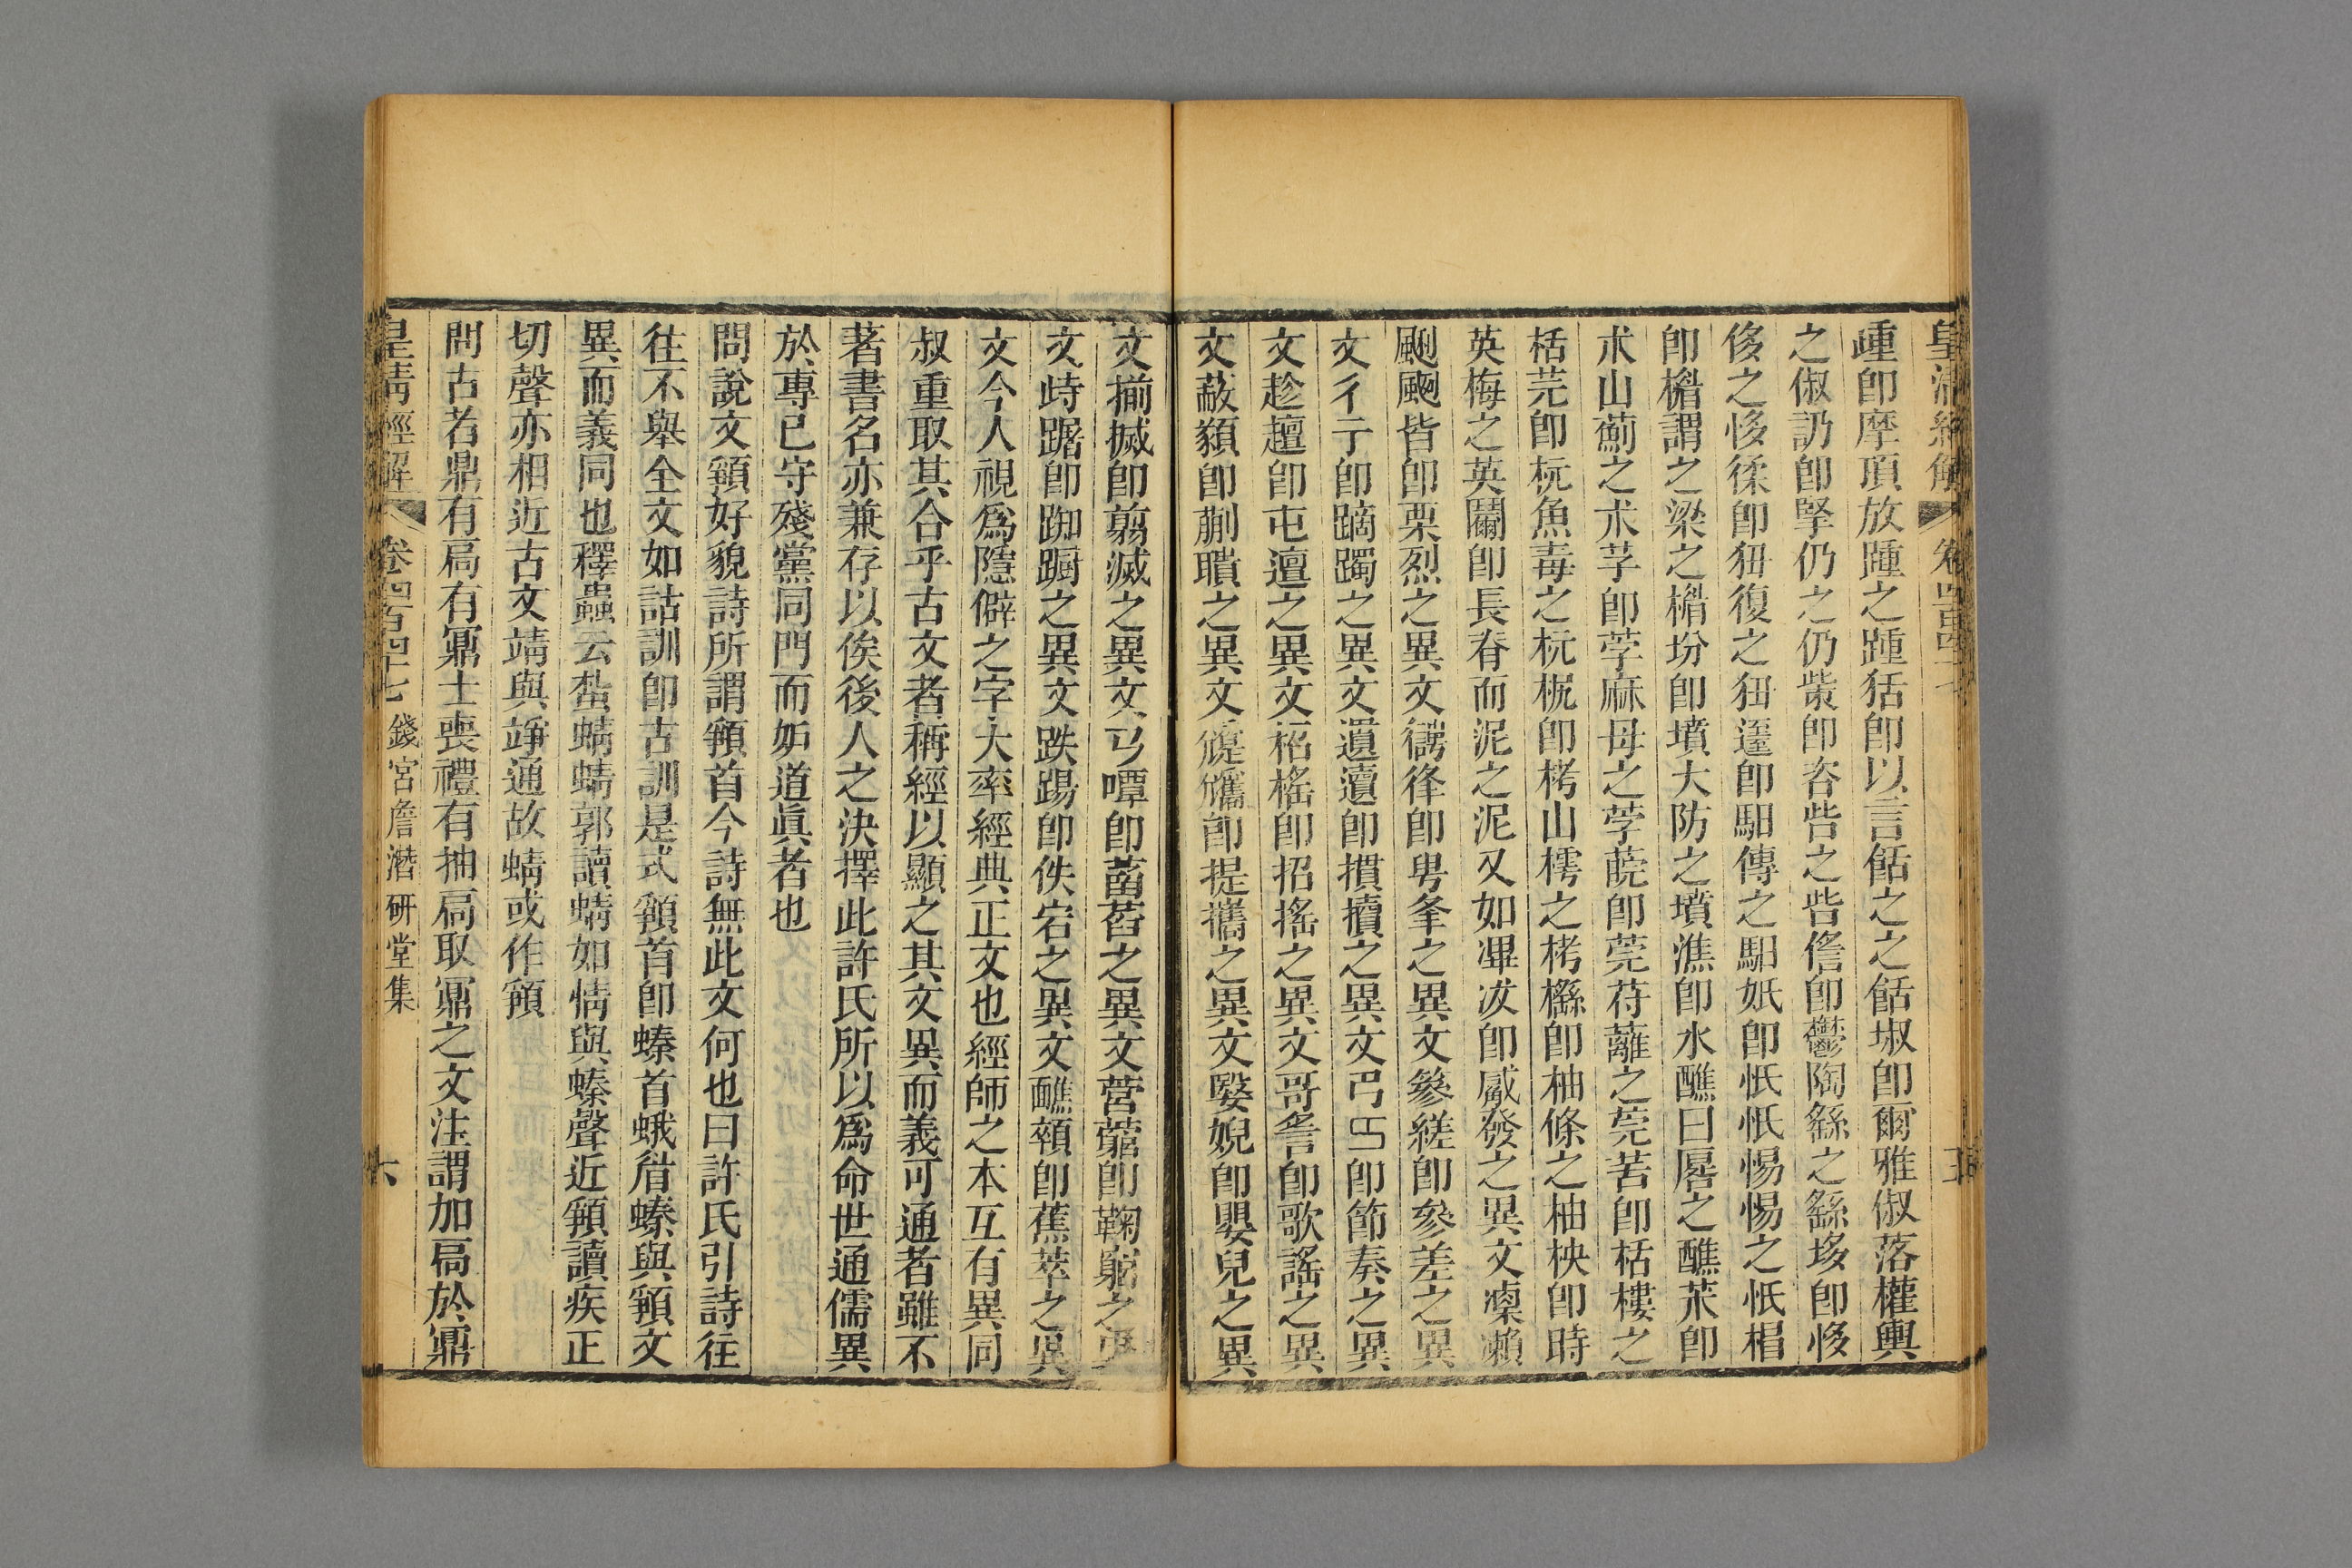 皇清經解 卷四百四十七 五
歱卽摩頂放踵之踵狧卽以言餂之之餂埱卽爾雅俶落權輿
之俶訒卽掔仍之仍紫卽吝呰之呰傄卽鬱陶繇之繇㛍卽恀
侈之恀徖卽狃復之狃遳卽馹傳之馹妷卽怟怟惕惕之怟椙
卽楷謂之梁之楷坋卽墳大防之墳潐卽水醮曰厬之醮茮卽
朮山薊之朮芓卽荸麻母之荸薍卽莞苻蘺之莞苦卽栝樓之
栝芫卽杬魚毒之杬柅卽栲山樗之栲櫾卽柚條之柚柍卽時
英梅之英䦱卽長脊而泥之泥又如滭冹卽觱發之異文凓瀨
颲颲皆卽栗烈之異文㣭夆卽甹夆之異文篸縒卽參差之異
文彳亍卽蹢躅之異文遺遦卽摜瀆之異文卪卽節奏之異
文趁趲卽屯邅之異文柖榣卽招搖之異文哥䚻卽歌謠之異
文蔽纇卽蒯聵之異文㩗卽提攜之異文嫛婗卽嬰兒之異
文揃搣卽翦滅之異文㔿嘾卽菡萏之異文營藭卽鞠躬之異
文峙䠧卽踟躕之異文跌踼卽佚宕之異文醮顇卽蕉萃之異
文今人視爲隱僻之字大率經典正文也經師之本互有異同
叔重取其合乎古文者稱經以顯之其文異而義可通者雖不
著書名亦兼存以俟後人之決擇此許氏所以爲命世通儒異
於專己守殘黨同門而妬道眞者也
問說文䫖好貌詩所謂䫖首今詩無此文何也曰許氏引詩往
往不舉全文如詁訓卽古訓是式䫖首卽螓首蛾眉螓與䫖文
異而義同也釋蟲云蚻蜻蜻郭讀蜻如情與螓聲近䫖讀疾正
切聲亦相近古文靖與竫通故蜻或作䫖
問古者鼎有扃有鼏士喪禮有抽扃取鼏之文注謂加扃於鼏
皇清經解 卷四百四十七 錢宮詹潛研堂集 六